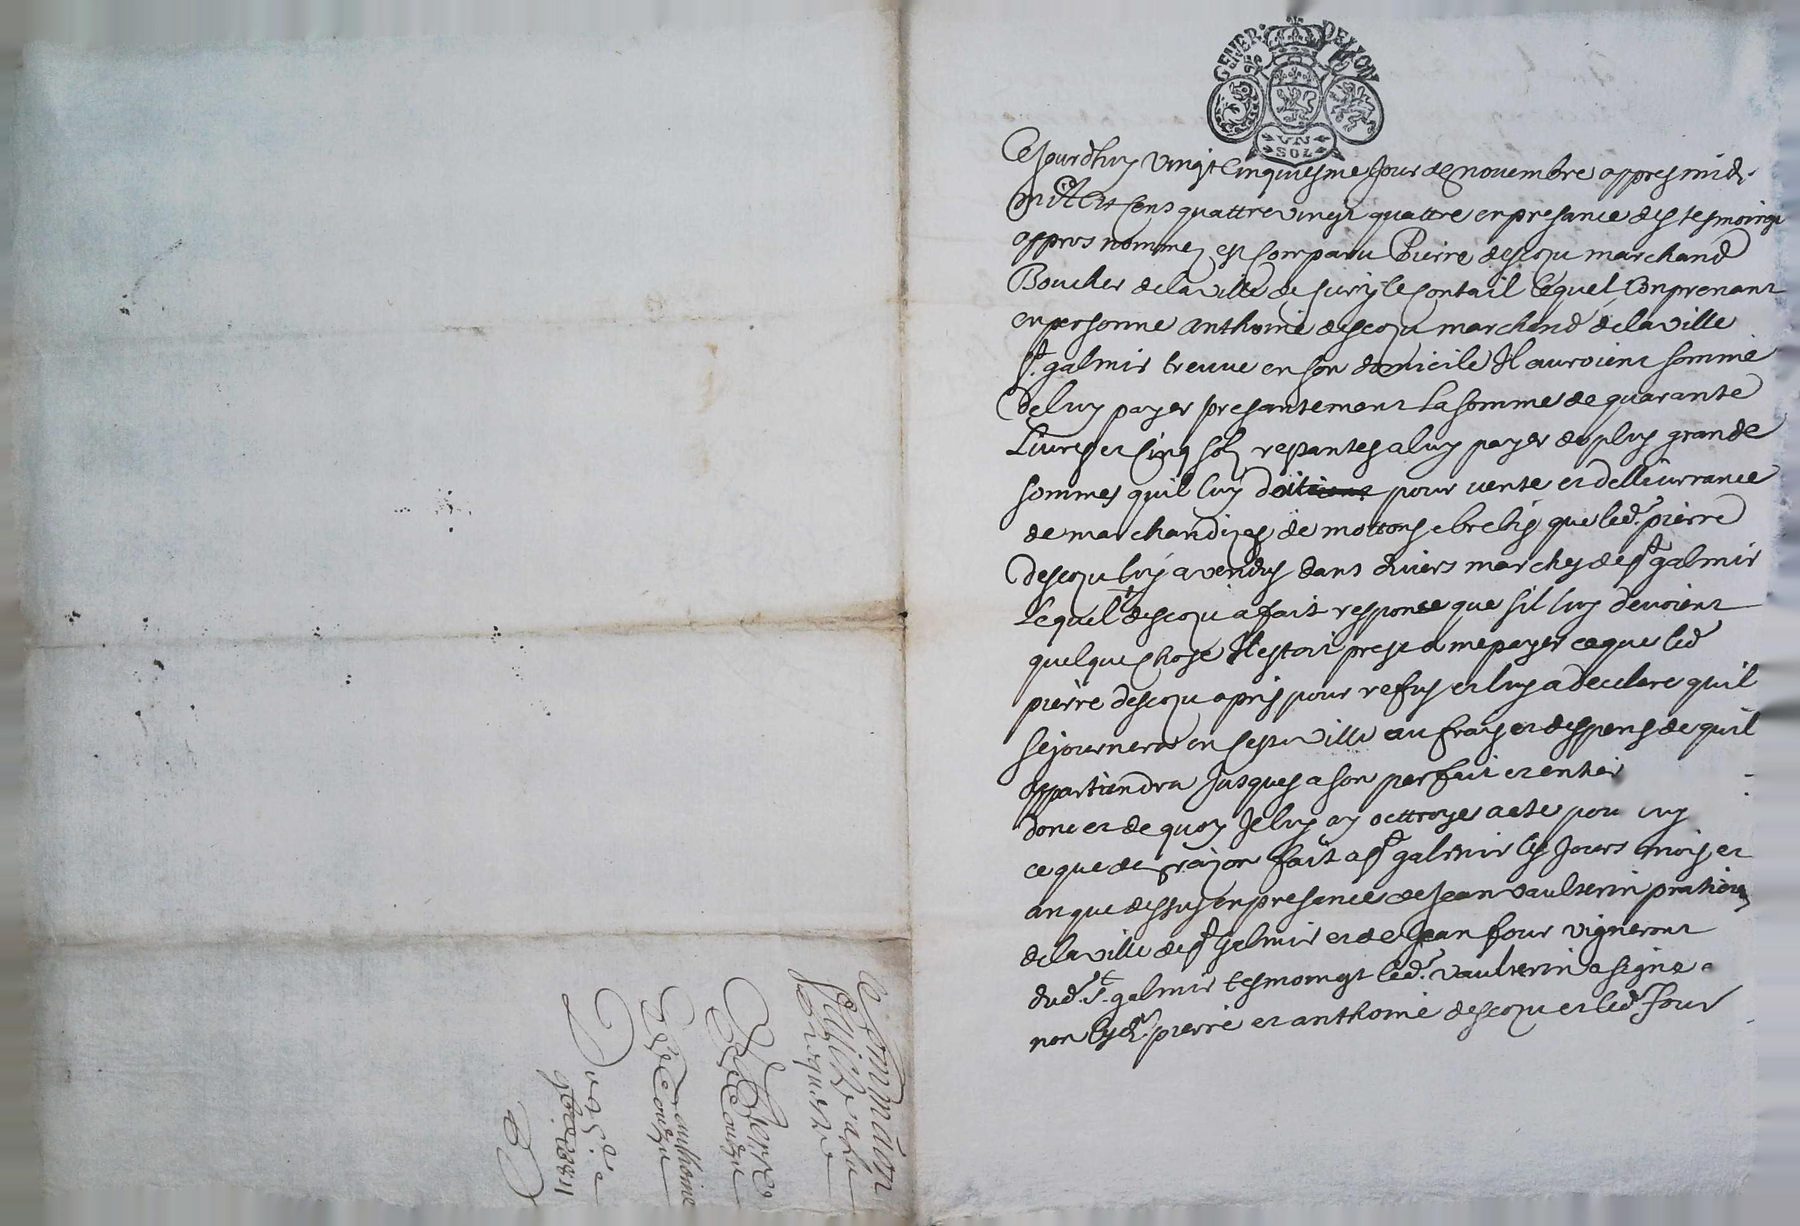 GENER DE LYON
UN
SOL
Cejourdhuy vingt cinquiesme jour de novembre appres midy
mil six cens quattre vingt quattre en presance des tesmoings
appres nommez est comparu Pierre descozu marchand
Boucher de la ville de sury le contail lequel Conprenant
en personne anthoine descozu marchand de la ville
st. galmir treuve en son domicile Il auroient sommé
de luy payer presantement la somme de quarante
Livres et cinq solz restantes a luy payer de plus grande
sommes quil luy doit pour vente et dellivrrance
de marchandizes de mottons e brebis que led. pierre
descozu luy a vendus dans divers marches de st galmir
Lequel descozu a fait responce que sil luy devoient
quelque chose Il estoit prest a me payer ce que led
pierre descozu a pris pour refus et luy a declare quil
sejournera en ceste ville au frais et despens de quil
appartiendra jusques a son perfait et entier
donc et de quoy Je luy ay octtroyes acte pou luy
ce que de raison fait a st galmir les jours mois et
an que dessus en presance de Jean vaulterin praticien
de la ville de st galmir et de Jean four vigneront
dud. st. galmir tesmoingt led. vaulterin a signe
non lesd. pierre et anthoine descozu et led. four
Sommaon
requeste
Pierre
Descouzu
anthoine
Descouzu
Du 25e
9bre 1684